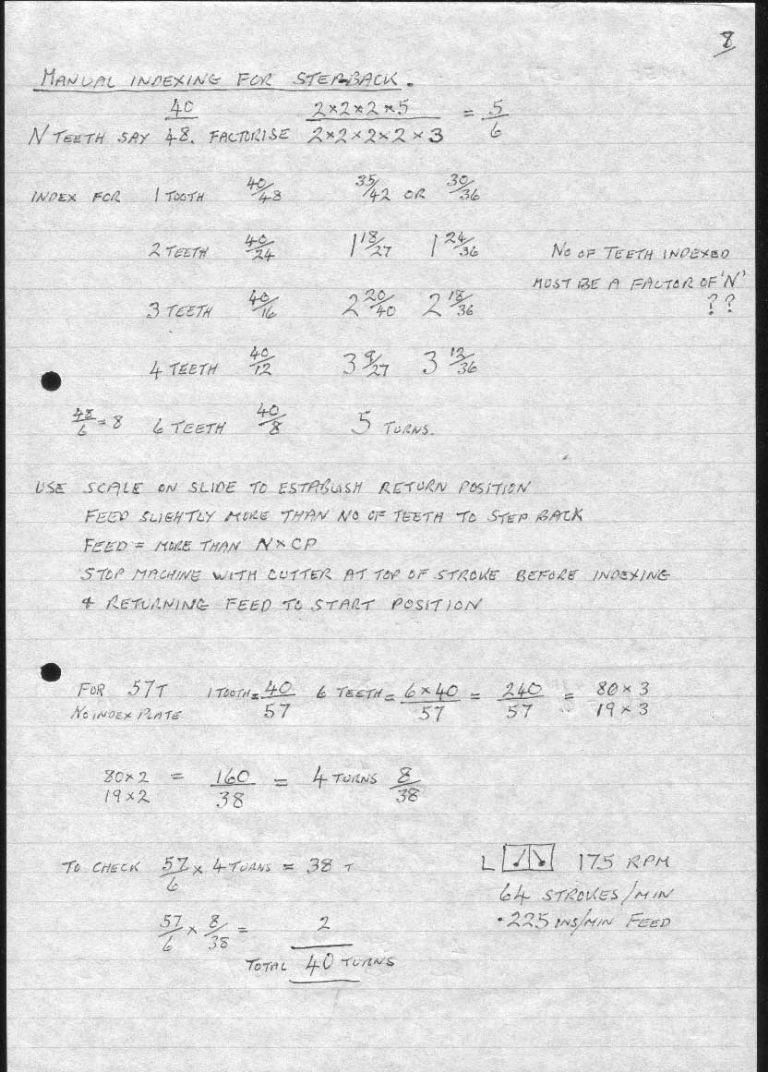 8
MANUAL INDEXING FOR STEPBACK.
N TEETH SAY 40/48. FACTORISE 2×2×2×5/2×2×2×2×3 = 5/6
INDEX FOR 1 TOOTH 40/48 35/42 OR 30/36
2 TEETH 40/24 1 18/27 1 24/36
NO OF TEETH INDEXED
MUST BE A FACTOR OF 'N'
??
3 TEETH 40/16 2 20/40 2 18/36
4 TEETH 40/12 3 9/27 3 12/36
48/6 = 8 6 TEETH 40/8 5 TURNS.
USE SCALE ON SLIDE TO ESTABLISH RETURN POSITION
FEED SLIGHTLY MORE THAN NO OF TEETH TO STEP BACK
FEED = MORE THAN N×CP
STOP MACHINE WITH CUTTER AT TOP OF STROKE BEFORE INDEXING
& RETURNING FEED TO START POSITION
FOR 57T 1 TOOTH = 40/57 6 TEETH = 6×40/57 = 240/57 = 80×3/19×3
NO INDEX PLATE
80×2/19×2 = 160/38 = 4 TURNS 8/38
TO CHECK 57/6 × 4 TURNS = 38 T
57/6 × 8/38 = 2
TOTAL 40 TURNS
L 175 RPM
64 STROKES/MIN
.225 INS/MIN FEED